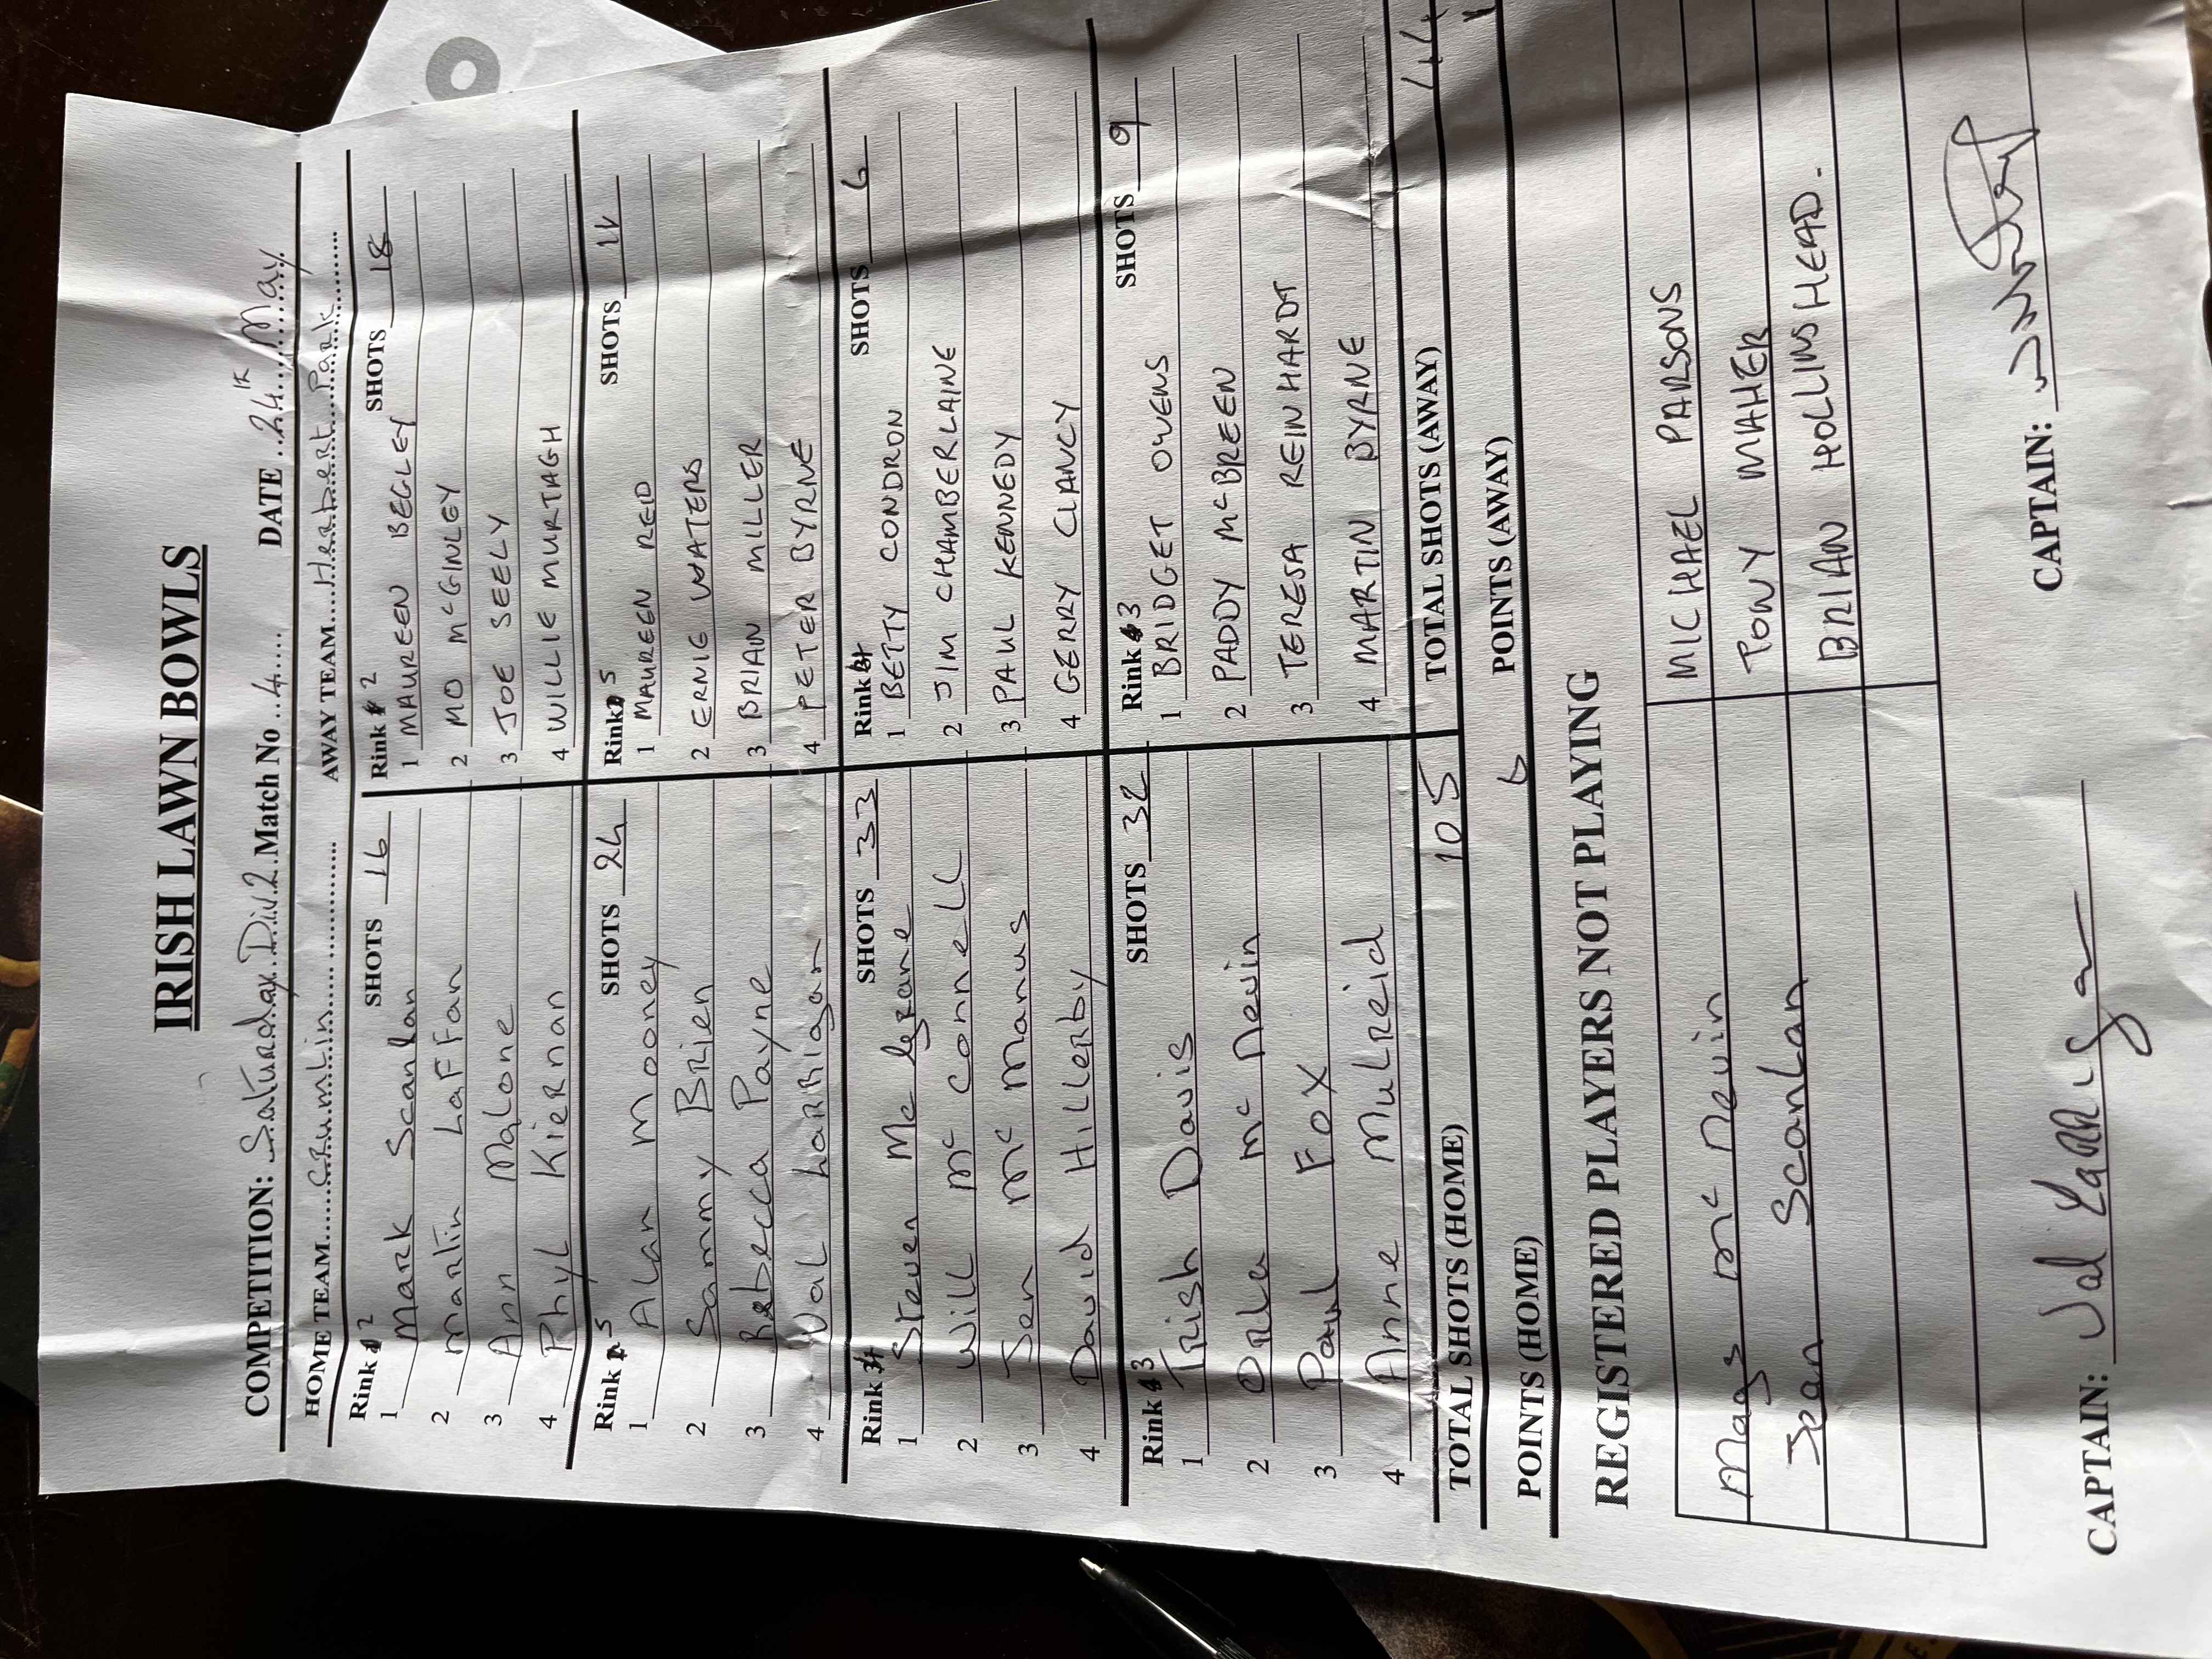 IRISH LAWN BOWLS
COMPETITION: Saturday Div 2 Match No 4 DATE 24th May
HOME TEAM Crumlin AWAY TEAM Herbert Park
Rink 2 SHOTS 16 Rink 2 SHOTS 18
1 Mark Scanlan 1 MAUREEN BEGLEY
2 Martin Laffan 2 MO McGINLEY
3 Ann Malone 3 JOE SEELY
4 Phyl Kiernan 4 WILLIE MURTAGH
Rink 5 SHOTS 24 Rink 5 SHOTS 11
1 Alan Mooney 1 MAUREEN REID
2 Sammy Brien 2 ERNIE WATERS
3 Rebecca Payne 3 BRIAN MILLER
4 Val Larrigan 4 PETER BYRNE
Rink 4 SHOTS 33 Rink 4 SHOTS 6
1 Steven Mc Grane 1 BETTY CONDRON
2 Will Mc Connell 2 JIM CHAMBERLAINE
3 Jen Mc Manus 3 PAUL KENNEDY
4 David Hillerby 4 GERRY CLANCY
Rink 3 SHOTS 32 Rink 3 SHOTS 9
1 Trish Davis 1 BRIDGET OWENS
2 Orla Mc Nevin 2 PADDY McBREEN
3 Paul Fox 3 TERESA REINHARDT
4 Anne Mulreid 4 MARTIN BYRNE
TOTAL SHOTS (HOME) 105 TOTAL SHOTS (AWAY) 44
POINTS (HOME) 6 POINTS (AWAY)
REGISTERED PLAYERS NOT PLAYING
Mags Mc Nevin MICHAEL PARSONS
Jean Scanlan TONY MAHER
BRIAN HOLLINSHEAD.
CAPTAIN: Val Larrigan CAPTAIN: